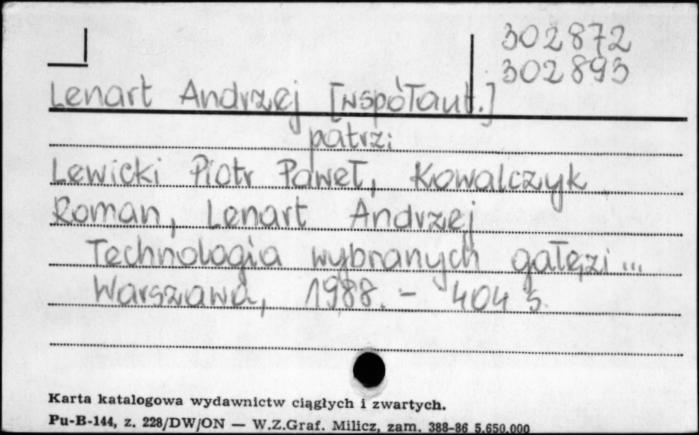 302872
302893
Lenart Andrzej [współaut.]
patrz:
Lewicki Piotr Paweł, Kowalczyk
Roman, Lenart Andrzej
Technologia wybranych gałęzi...
Warszawa, 1988. - 404 s.
Karta katalogowa wydawnictw ciągłych i zwartych.
Pu-B-144, z. 228/DW/ON — W.Z.Graf. Milicz, zam. 388-86 5.650.000